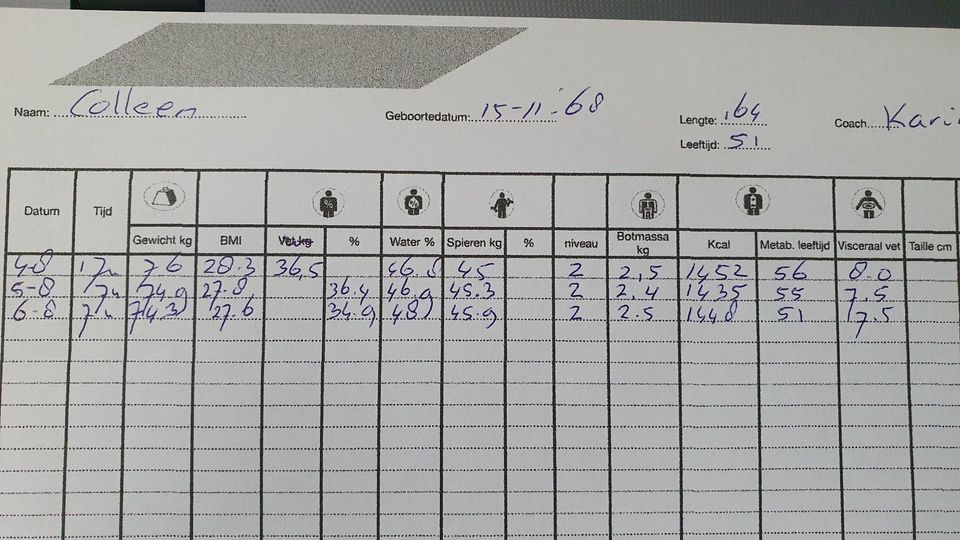 Naam: Colleen Geboortedatum: 15-11-'68 Lengte: 164 Coach Kari
Leeftijd: 51
Datum Tijd Gewicht kg BMI Vet kg % Water % Spieren kg % niveau Botmassa kg Kcal Metab. leeftijd Visceraal vet Taille cm
4-8 17u 76 28.3 36,5 46.8 45 2 2,5 1452 56 8.0
5-8 7u 74.9 27.8 36.4 46.9 45.3 2 2.4 1435 55 7.5
6-8 7u 74.3 27.6 34.9 48 45.9 2 2.5 1448 51 7.5